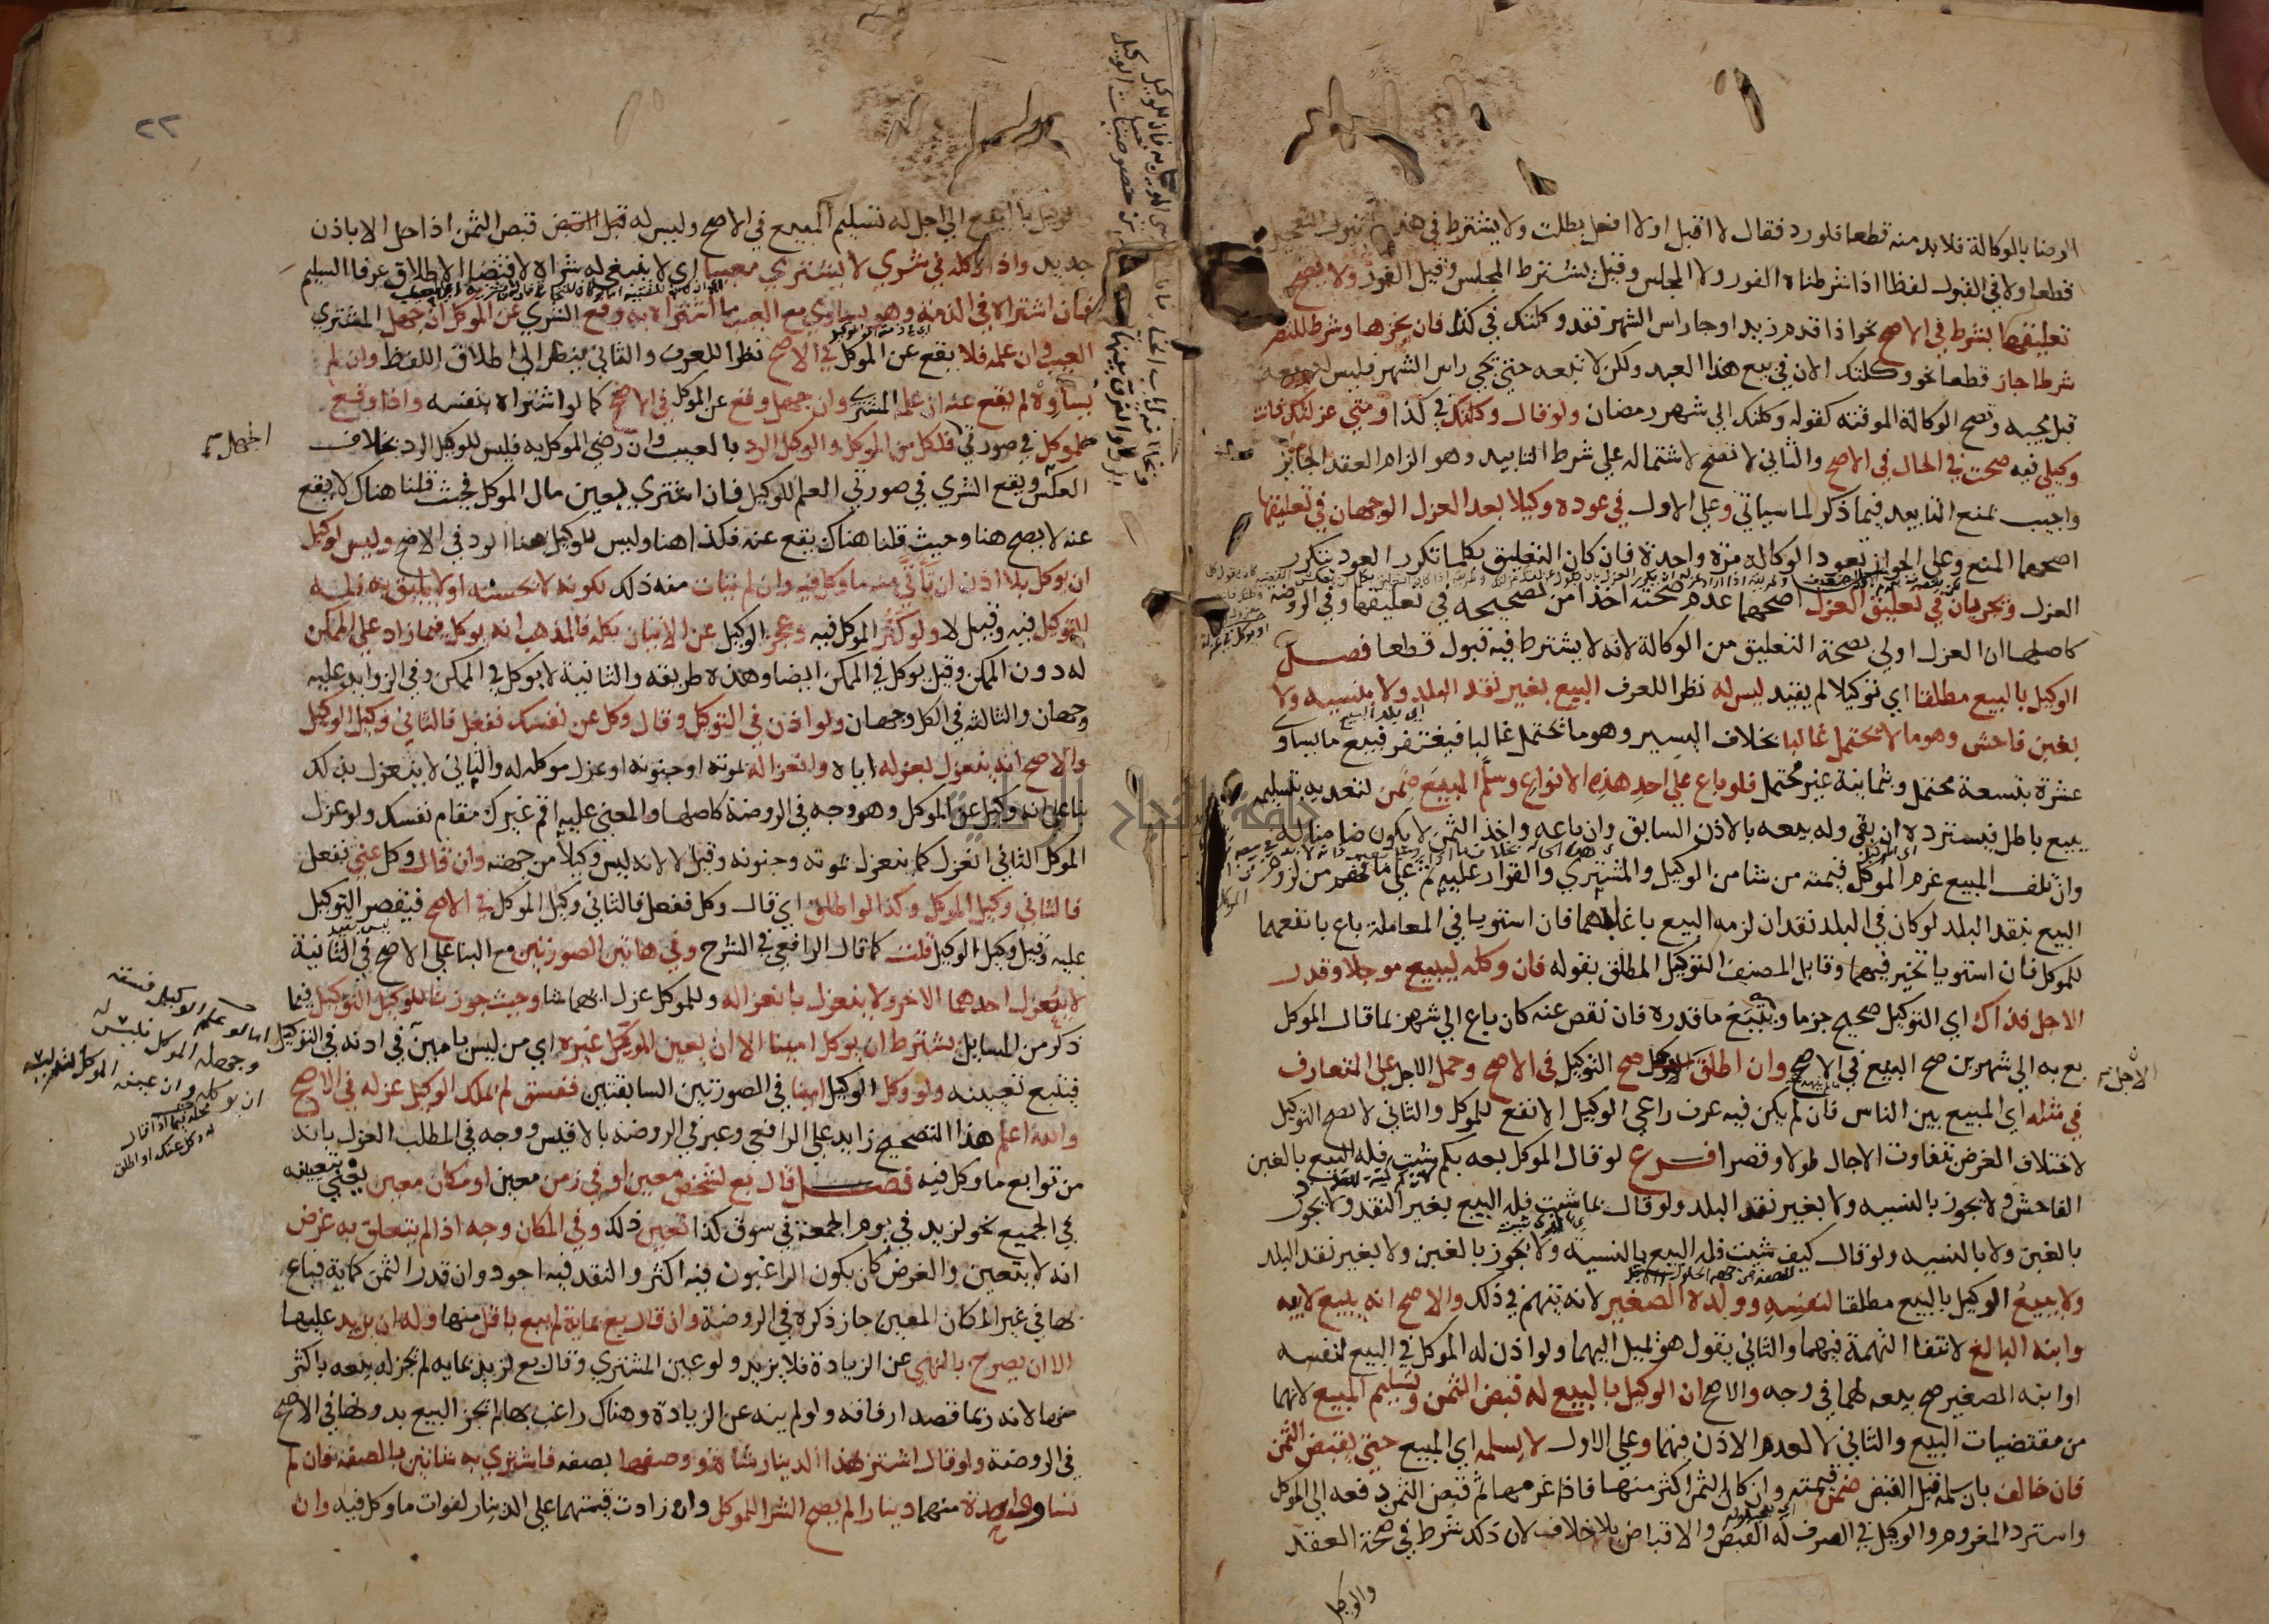 الرضا بالوكالة فلا بد منه قطعا فلو رد فقال لا اقبل او لا افعل بطلت ولا يشترط في هذا القبول التعجيل
قطعا ولا في القبول لفظا اذا شرطناه الفور ولا المجلس وقيل يشترط المجلس وقيل الفور ولا يصح
تعليقها بشرط في الاصح نحو اذا قدم زيد او جا راس الشهر فقد وكلتك في كذا فان نجزها وشرط للتصرف
شرطا جاز قطعا نحو وكلتك الان في بيع هذا العبد ولكن لا تبعه حتى يجي راس الشهر فليس له بيعه
قبل مجيه وتصح الوكالة الموقتة كقوله وكلتك الى شهر رمضان ولو قال وكلتك في كذا ومتى عزلتك فانت
وكيلي فيه صحت في الحال في الاصح والثاني لا تصح لاشتماله على شرط التابيد وهو الزام العقد الجايز
واجيب بمنع التابيد فيما ذكر لما سياتي وعلى الاول في عوده وكيلا بعد العزل الوجهان في تعليقها
اصحهما المنع وعلى الجواز تعود الوكالة مرة واحدة فان كان التعليق بكلما تكرر العود بتكرر
العزل ويجريان في تعليق العزل اصحهما عدم صحته اخذا من تصحيحه في تعليقها وفي الروضة
كاصلها ان العزل اولى بصحة التعليق من الوكالة لانه لا يشترط فيه قبول قطعا فصل
الوكيل بالبيع مطلقا اي توكيلا لم يقيد ليس له نظرا للعرف البيع بغير نقد البلد ولا بنسيية ولا
بغبن فاحش وهو ما لا يحتمل غالبا بخلاف اليسير وهو ما يحتمل غالبا فيغتفر فبيع ما يساوي
عشرة بتسعة محتمل وبثمانية غير محتمل فلو باع على احد هذه الانواع وسلم المبيع ضمن لتعديه بتسليمه
ببيع باطل فيسترده ان بقي وله بيعه بالاذن السابق وان باعه واخذ الثمن لا يكون ضامنا له
وان تلف المبيع غرم الموكل قيمته من شا من الوكيل والمشتري والقرار عليه ثم على ما فهم من لزوم
البيع بنقد البلد لو كان في البلد نقدان لزمه البيع باغلبهما فان استويا في المعاملة باع بانفعهما
للموكل فان استويا تخير فيهما وقابل المصنف التوكيل المطلق بقوله فان وكله ليبيع موجلا وقدر
الاجل فذاك اي التوكيل صحيح جزما ويتبع ما قدره فان نقص عنه كان باع الى شهر بما قال الموكل
بع به الى شهرين صح البيع في الاصح وان اطلق صح التوكيل في الاصح وحمل الاجل على المتعارف
الاجل
في مثله اي المبيع بين الناس فان لم يكن فيه عرف راعى الوكيل الانفع للموكل والثاني لا يصح التوكيل
لاختلاف الغرض بتفاوت الاجال طولا وقصرا فرع لو قال الموكل بعه بكم شيت فله البيع بالغبن
الفاحش ولا يجوز بالنسيه ولا بغير نقد البلد ولو قال بما شيت فله البيع بغير النقد ولا يجوز
بالغبن ولا بالنسيه ولو قال كيف شيت فله البيع بالنسيه ولا يجوز بالغبن ولا بغير نقد البلد
ولا يبيع الوكيل بالبيع مطلقا لنفسه وولده الصغير لانه يتهم في ذلك والاصح انه يبيع لابيه
وابنه البالغ لانتفا التهمة فيهما والثاني يقول هو يميل اليهما ولو اذن له الموكل في البيع لنفسه
او ابنه الصغير صح بيعه لهما في وجه والاصح ان الوكيل بالبيع له قبض الثمن وتسليم المبيع لانهما
من مقتضيات البيع والثاني لا لعدم الاذن فيهما وعلى الاول لا يسلمه اي المبيع حتى يقبض الثمن
فان خالف بان سلمه قبل القبض ضمن قيمته وان كان الثمن اكثر منها فاذا غرمها ثم قبض الثمن دفعه الى الموكل
واسترد المغروم والوكيل في الصرف له القبض والاقباض بلا خلاف لان ذلك شرط في صحة العقد
والوكيل
٢٢
الوكيل بالبيع الى اجل له تسليم المبيع في الاصح وليس له قبض الثمن اذا حل الا باذن
جديد واذا وكله في شرى لا يشتري معيبا اي لا ينبغي له شراه لاقتضا الاطلاق عرفا السليم
فان اشتراه في الذمة وهو يساوي مع العيب ما اشتراه به وقع الشرى عن الموكل ان جهل المشتري
العيب وان علمه فلا يقع عن الموكل في الاصح نظرا للعرف والثاني ينظر الى اطلاق اللفظ وان لم
يساوه لم يقع عنه ان علمه المشتري وان جهل وقع عن الموكل في الاصح كما لو اشتراه بنفسه واذا وقع
للموكل في صورتي فلكل من الموكل والوكيل الرد بالعيب وان رضي الموكل به فليس للوكيل الرد بخلاف
الجهل
العكس ويقع الشرى في صورتي العلم للوكيل فان اشترى بعين مال الموكل فحيث قلنا هناك لا يقع
عنه لا يصح هنا وحيث قلنا هناك يقع عنه فكذا هنا وليس للوكيل هنا الرد في الاصح وليس لوكيل
ان يوكل بلا اذن ان تأتى منه ما وكل فيه وان لم يتات منه ذلك لكونه لا يحسنه او لا يليق به فله
التوكيل فيه وقيل لا ولو كثر الموكل فيه وعجز الوكيل عن الاتيان بكله فالمذهب انه يوكل فيما زاد على الممكن
له دون الممكن وقيل يوكل في الممكن ايضا وهذه طريقه والثانية لا يوكل في الممكن وفي الزوايد عليه
وجهان والثالثة في الكل وجهان ولو اذن في التوكيل وقال وكل عن نفسك ففعل فالثاني وكيل الوكيل
والاصح انه ينعزل بعزله اياه وانعزاله بموته او جنونه او عزل موكله له والثاني لا ينعزل بذلك
بنا على انه وكيل عن الموكل وهو وجه في الروضة كاصلها والمعنى عليه اقم غيرك مقام نفسك ولو عزل
الموكل الثاني انعزل كما ينعزل بموته وجنونه وقيل لا لانه ليس وكيلا من جهته وان قال وكل عني ففعل
فالثاني وكيل الموكل وكذا لو اطلق اي قال وكل ففعل فالثاني وكيل الموكل في الاصح فيقصر التوكيل
عليه وقيل وكيل الوكيل قلت كما قال الرافعي في الشرح وفي هاتين الصورتين مع البنا على الاصح في الثانية
لا يعزل احدهما الاخر ولا ينعزل بانعزاله وللموكل عزل ايهما شا وحيث جوزنا للوكيل التوكيل فيما
ذكر من المسايل يشترط ان يوكل امينا الا ان يعين الموكل غيره اي من ليس بامين في اذنه في التوكيل
فيتبع تعيينه ولو وكل الوكيل امينا في الصورتين السابقتين ففسق لم يملك الوكيل عزله في الاصح
والله اعلم هذا التصحيح زايد على الرافعي وعبر في الروضة بالاقيس ووجه في المطلب العزل بانه
من توابع ما وكل فيه فصل قال بع لشخص معين او في زمن معين او مكان معين يعني بتعيينه
في الجميع نحو لزيد في يوم الجمعة في سوق كذا تعين ذلك وفي المكان وجه اذا لم يتعلق به غرض
انه لا يتعين والغرض كان يكون الراغبون فيه اكثر والنقد فيه اجود وان قدر الثمن كماية فباع
بها في غير المكان المعين جاز ذكره في الروضة وان قال بع بماية لم يبع باقل منها وله ان يزيد عليها
الا ان يصرح بالنهي عن الزيادة فلا يزيد ولو عين المشتري وقال بع لزيد بمايه لم يجز له بيعه باكثر
منها لانه ربما قصد ارفاقه ولو لم ينه عن الزيادة وهناك راغب بها لم يجز البيع بدونها في الاصح
في الروضة ولو قال اشتر بهذا الدينار شاة ووصفها بصفه فاشترى به شاتين بالصفة فان لم
تساو واحدة منهما دينارا لم يصح الشرا للموكل وان زادت قيمتهما على الدينار لفوات ما وكل فيه وان
اما لو علم الوكيل فسقه
وجهله الموكل فليس له
ان يوكله وان عينه الموكل
محله فيما اذا قال
وكل عنك او اطلق